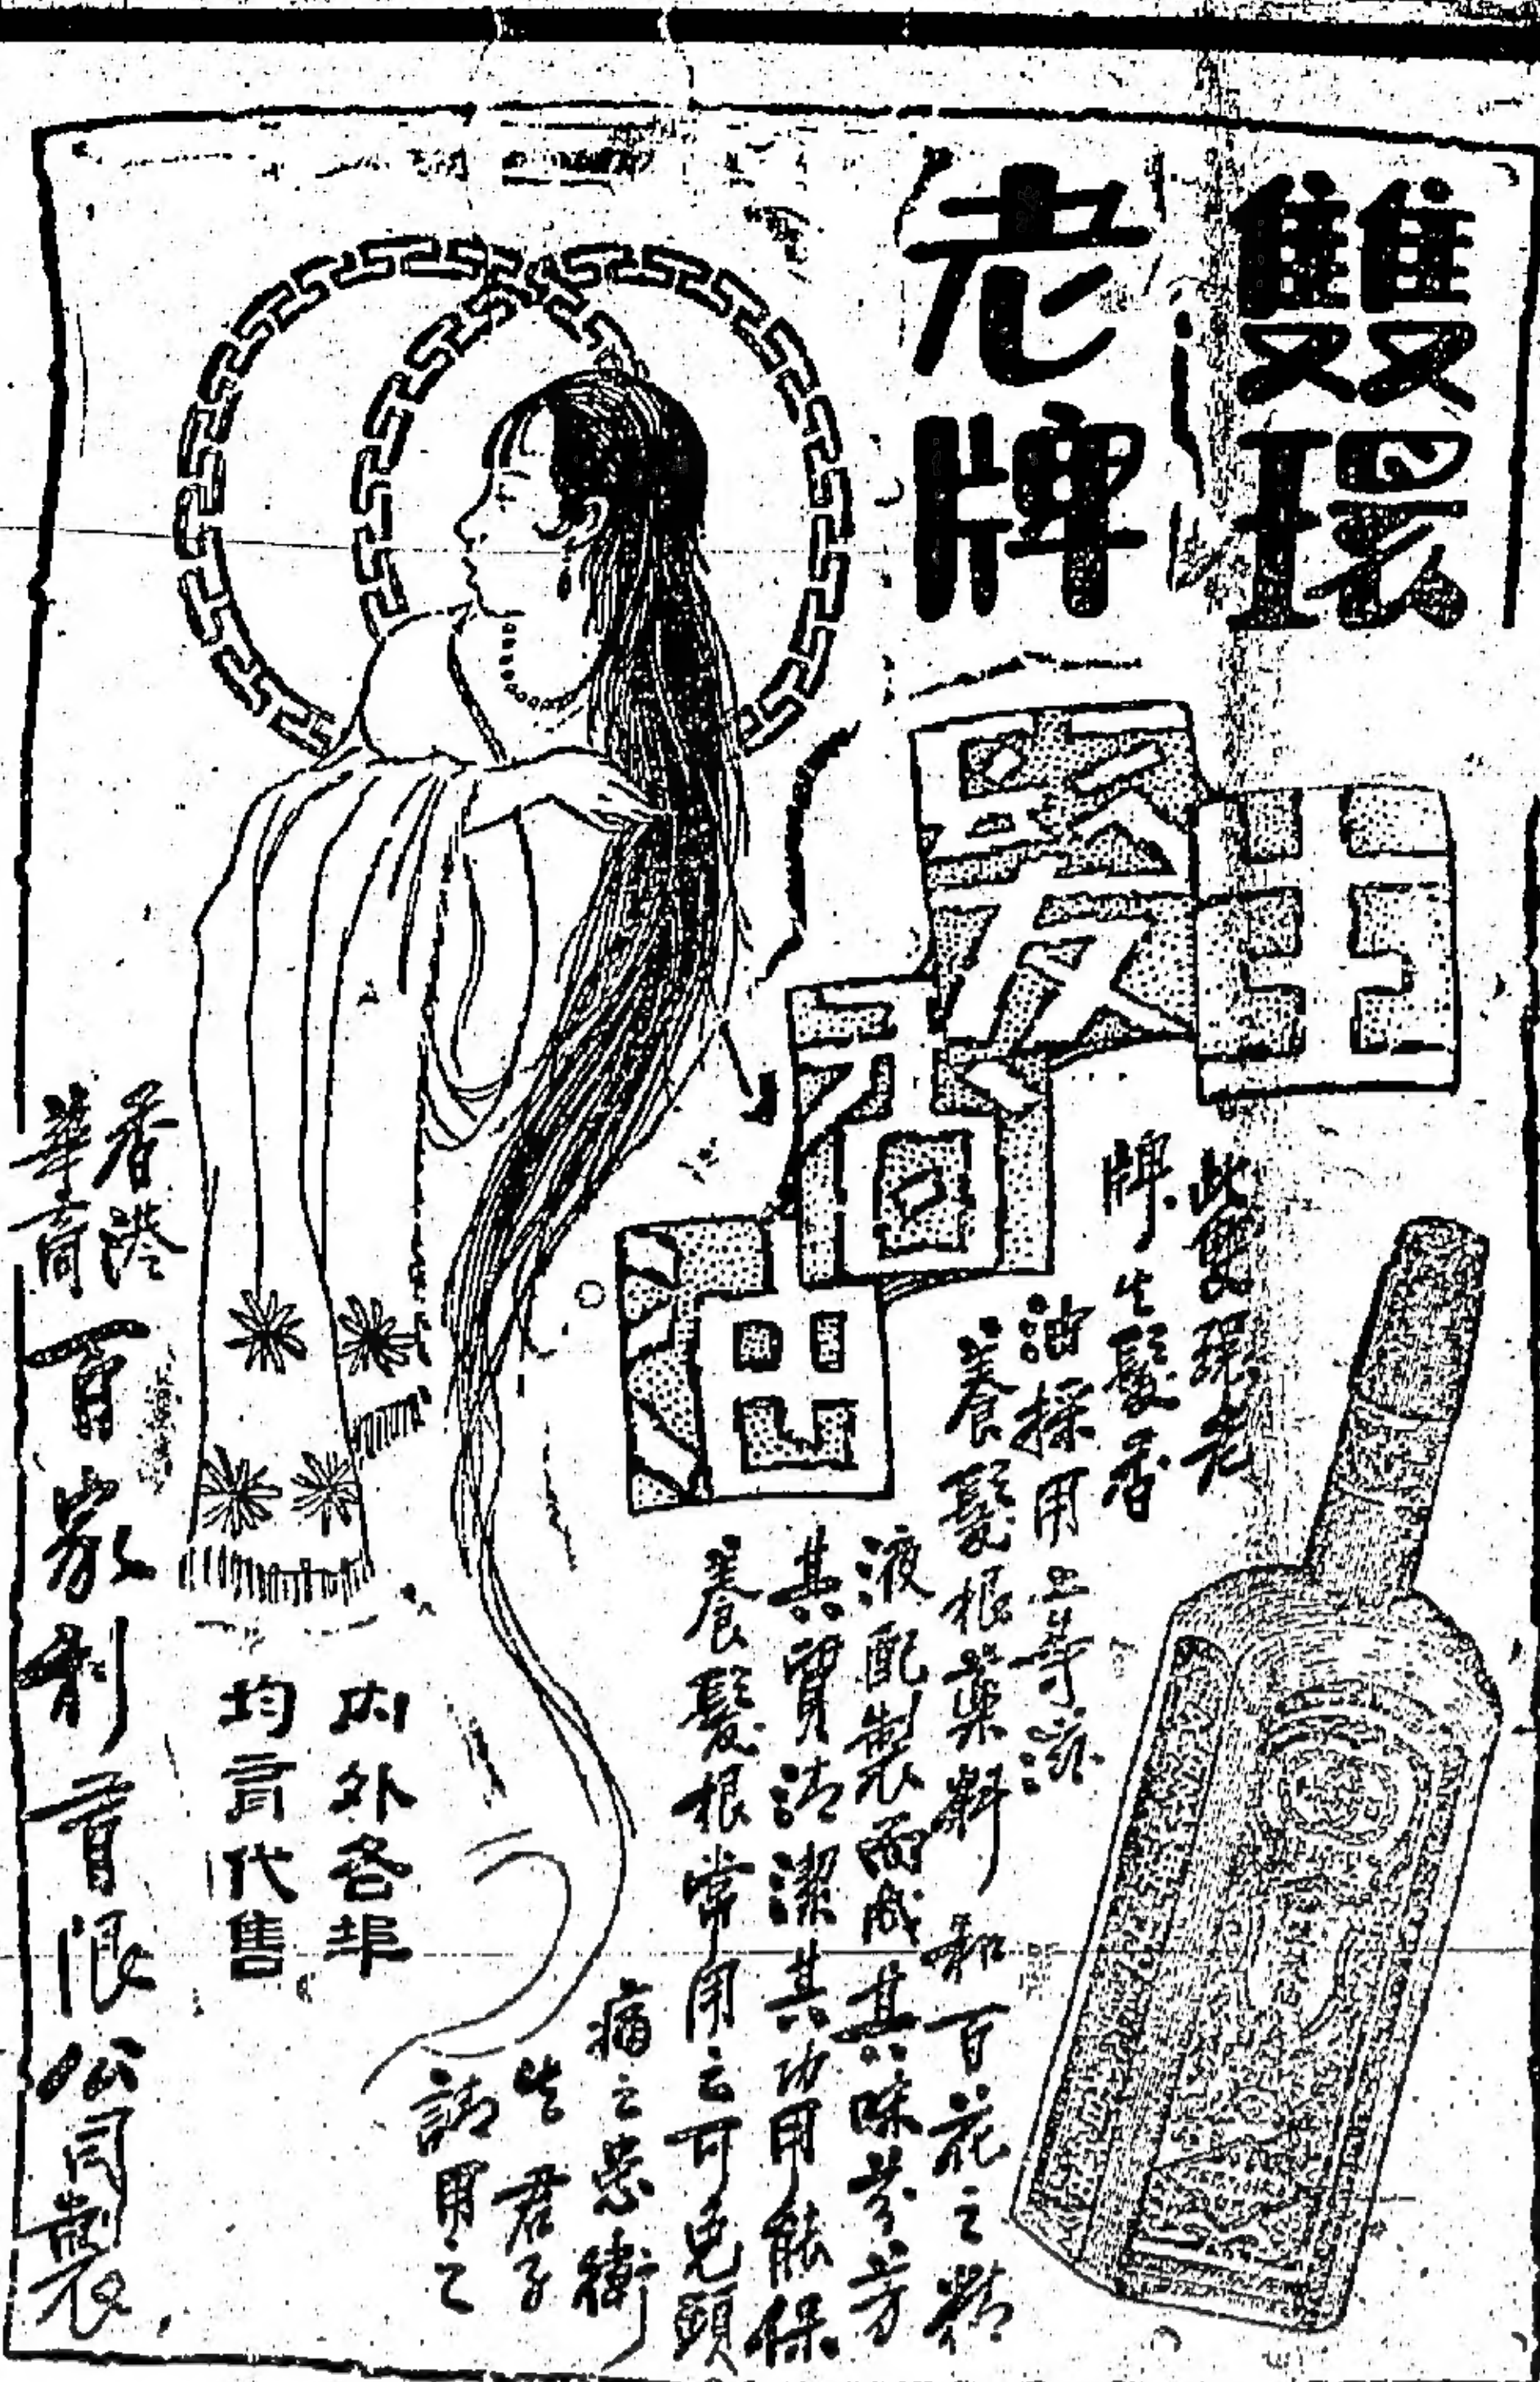 雙環
老牌
生
髮
香
油
此雙環老
牌生髮香
油採用上等滋
養髮根藥料和百花之精
液配製而成其味芬芳
其質清潔其功用能保
養髮根常用之可免頭
痛之患衛
生君子
請用之
內外各埠
均有代售
香港
華商
百家利有限公司製